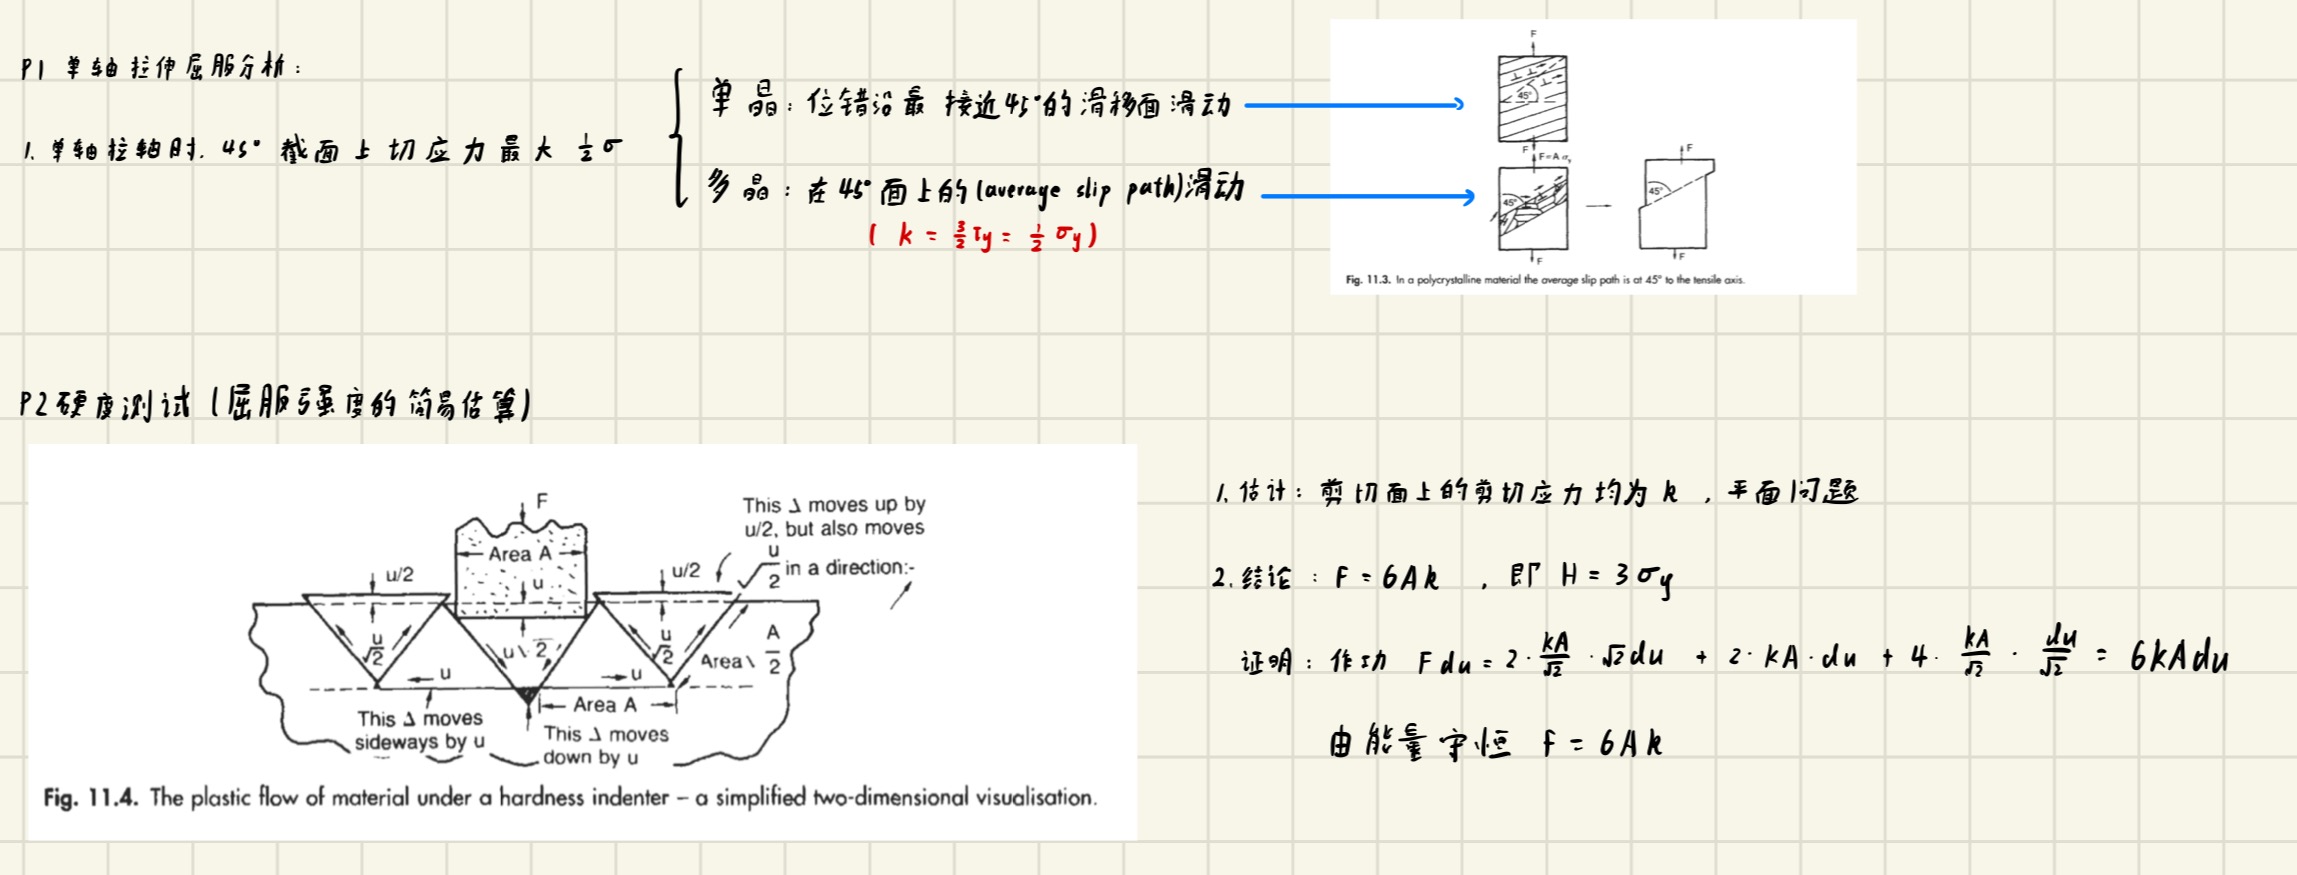 P1 单轴拉伸屈服分析：
1. 单轴拉轴时. 45° 截面上切应力最大 ½σ
单晶：位错沿最接近45°的滑移面滑动
多晶：在45°面上的(average slip path)滑动
( k = 3/2 τy = 1/2 σy )
F
45°
F
F=Aσy
45°
F
F
45°
F
Fig. 11.3. In a polycrystalline material the average slip path is at 45° to the tensile axis.
P2 硬度测试 (屈服强度的简易估算)
F
Area A
u
u/2
u/2
This Δ moves up by
u/2, but also moves
u/2 in a direction:-
u/√2
u√2
u/√2
Area A/√2
u
u
Area A
This Δ moves
sideways by u
This Δ moves
down by u
Fig. 11.4. The plastic flow of material under a hardness indenter – a simplified two-dimensional visualisation.
1. 估计：剪切面上的剪切应力均为 k ，平面问题
2. 结论：F = 6Ak ，即 H = 3σy
证明：作功 Fdu = 2·kA/√2·√2du + 2·kA·du + 4·kA/√2·du/√2 = 6kAdu
由能量守恒 F = 6Ak